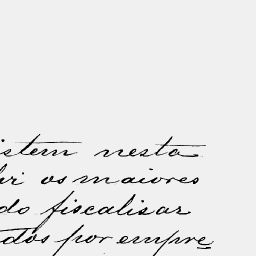 istem nesta
hi os maiores
do fiscalisar
dos por empre